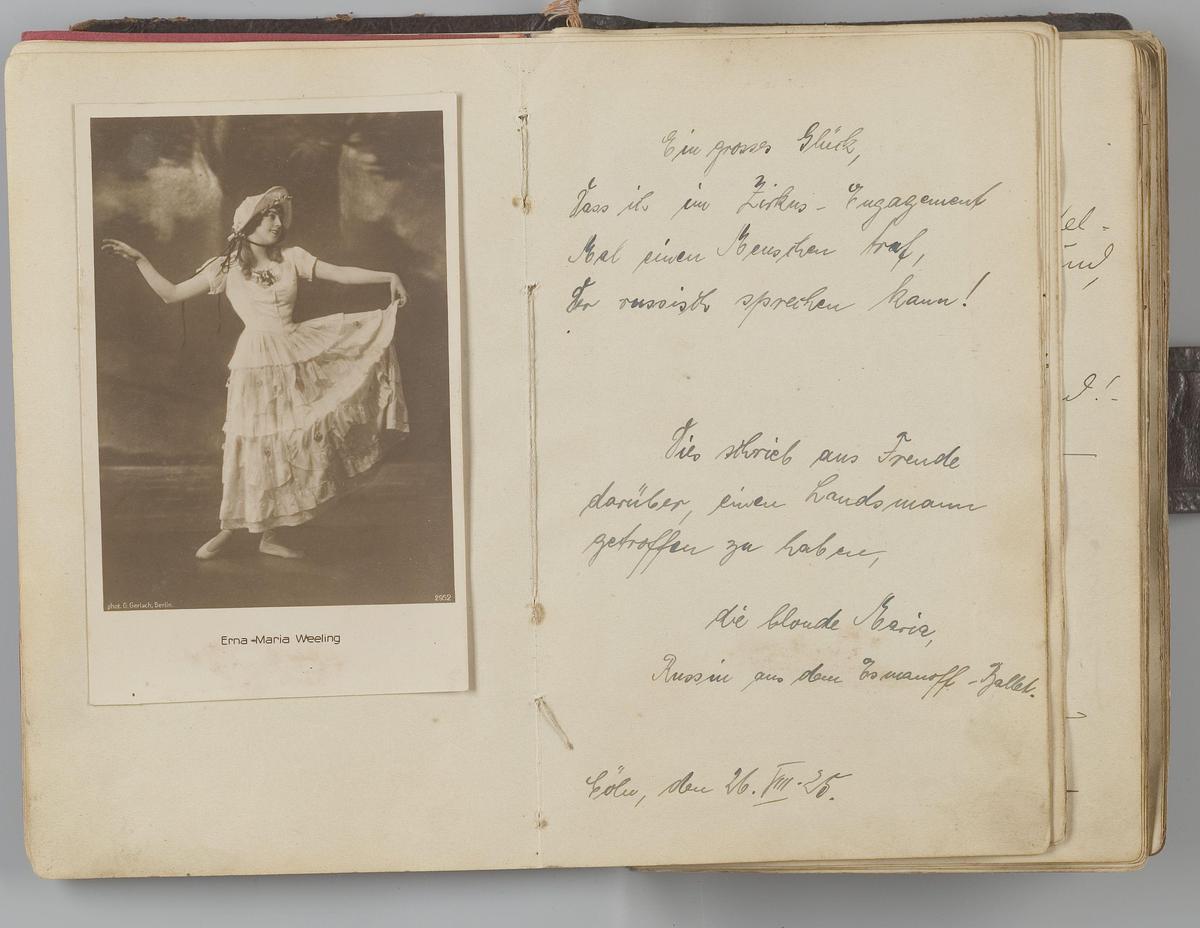 phot. G. Gerlach, Berlin.
2952
Erna-Maria Weeling
Ein grosses Glück,
Dass ich im Zirkus-Engagement
Mal einen Menschen traf,
Der russisch sprechen kann!
Dies schrieb aus Freude
darüber, einen Landsmann
getroffen zu haben,
die blonde Maria,
Russin aus dem Esmanoff-Ballet.
Cöln, den 26. VIII. 25.